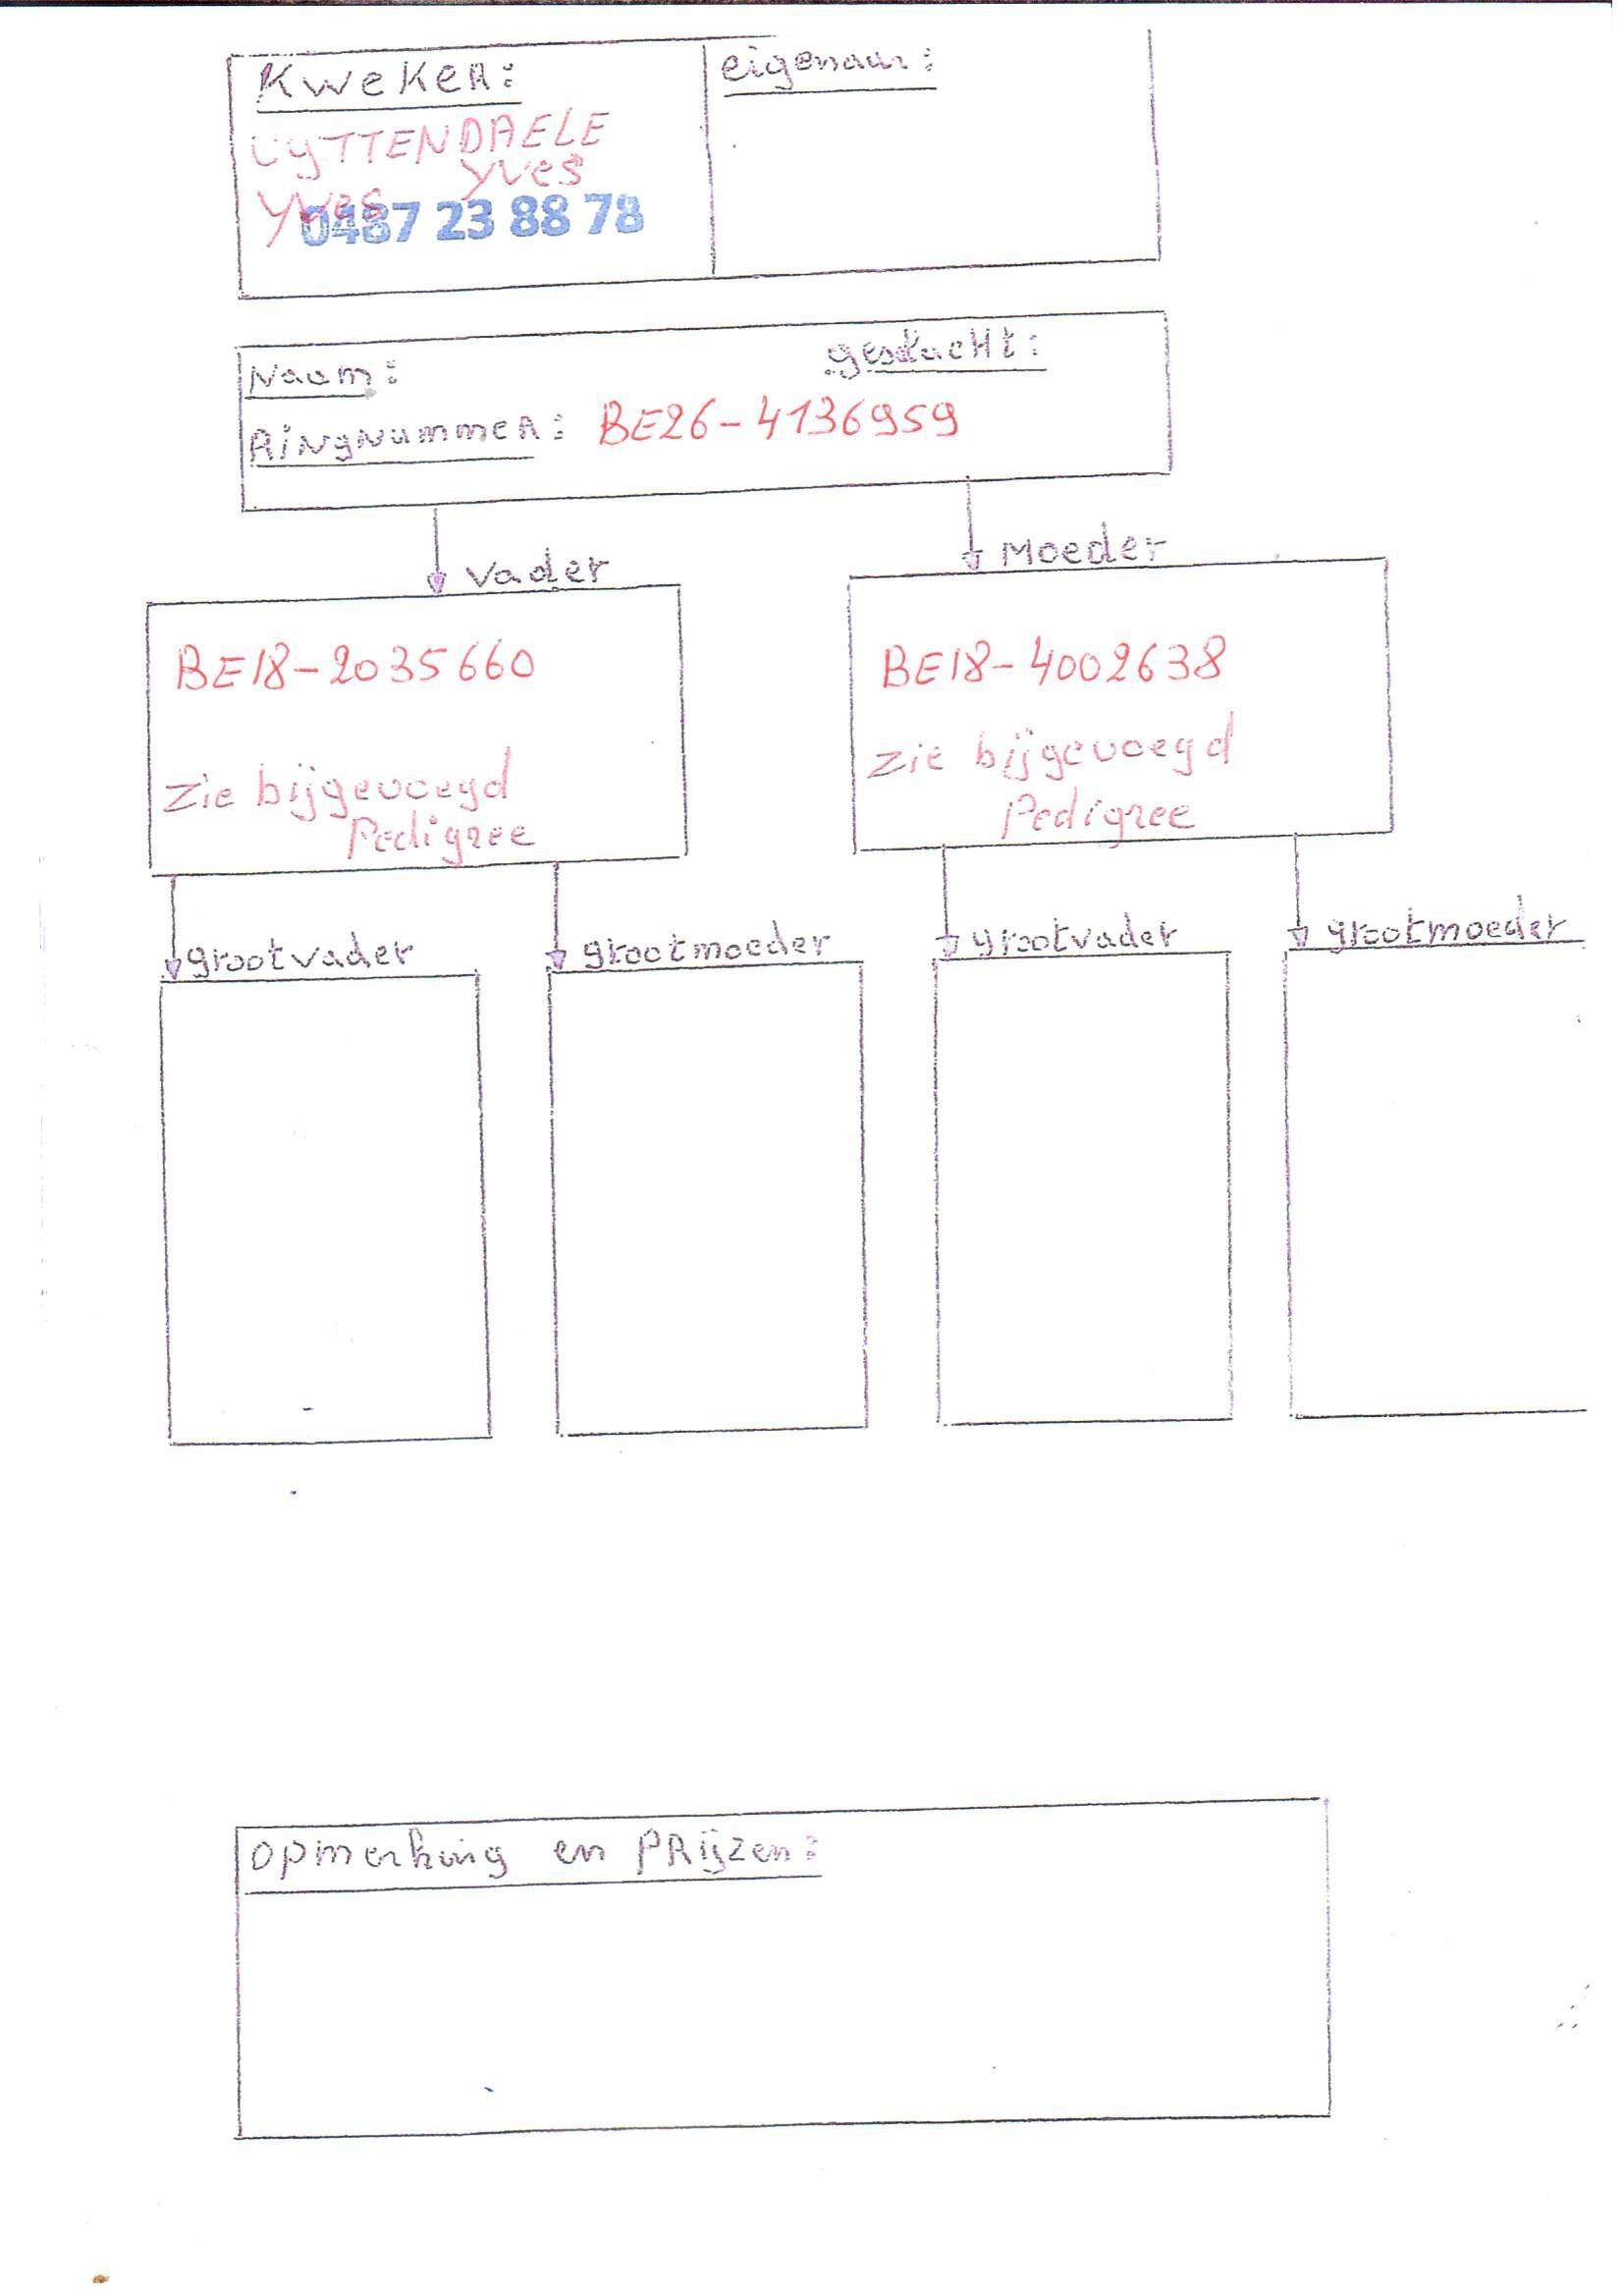 Kweker:
eigenaar:
UyTTENDAELE
Yves
Yves
0487 23 88 78
Naam:
geslacht:
Ringnummer: BE26-4136959
Vader
Moeder
BE18-2035660
BE18-4002638
Zie bijgevoegd
Pedigree
Zie bijgevoegd
Pedigree
grootvader
grootmoeder
grootvader
grootmoeder
opmerking en PRijzen: